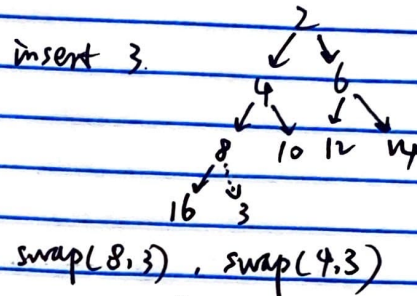 2
insert 3.
4 6
8 10 12 14
16 3
swap(8,3), swap(4,3)